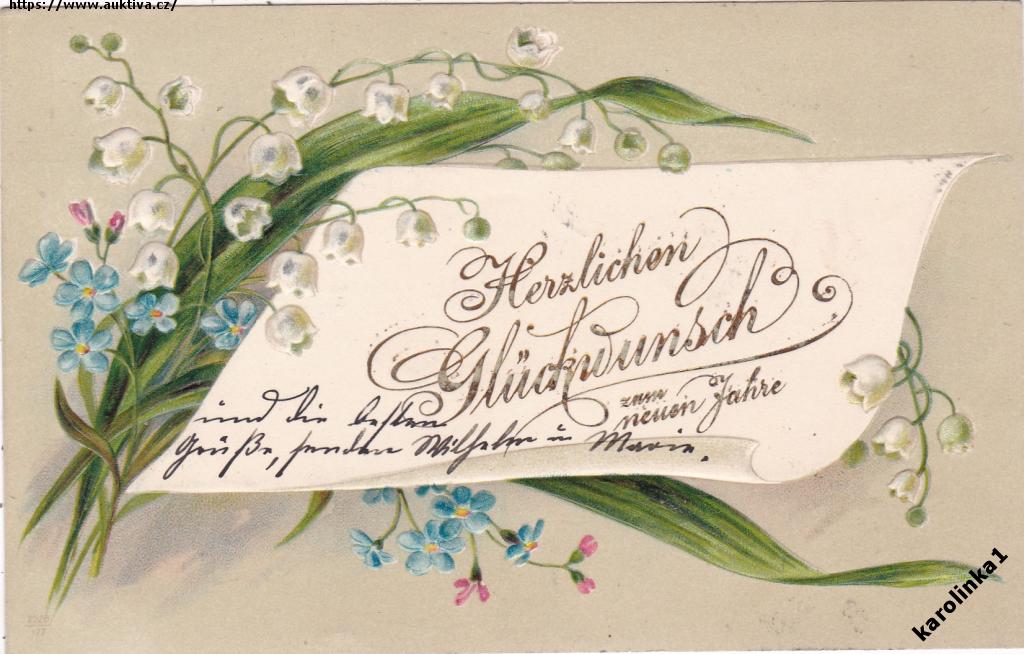 https://www.auktiva.cz/
Herzlichen
Glückwunsch
zum
neuen Jahre
und die besten
Grüße, senden Wilhelm u Marie.
karolinka1